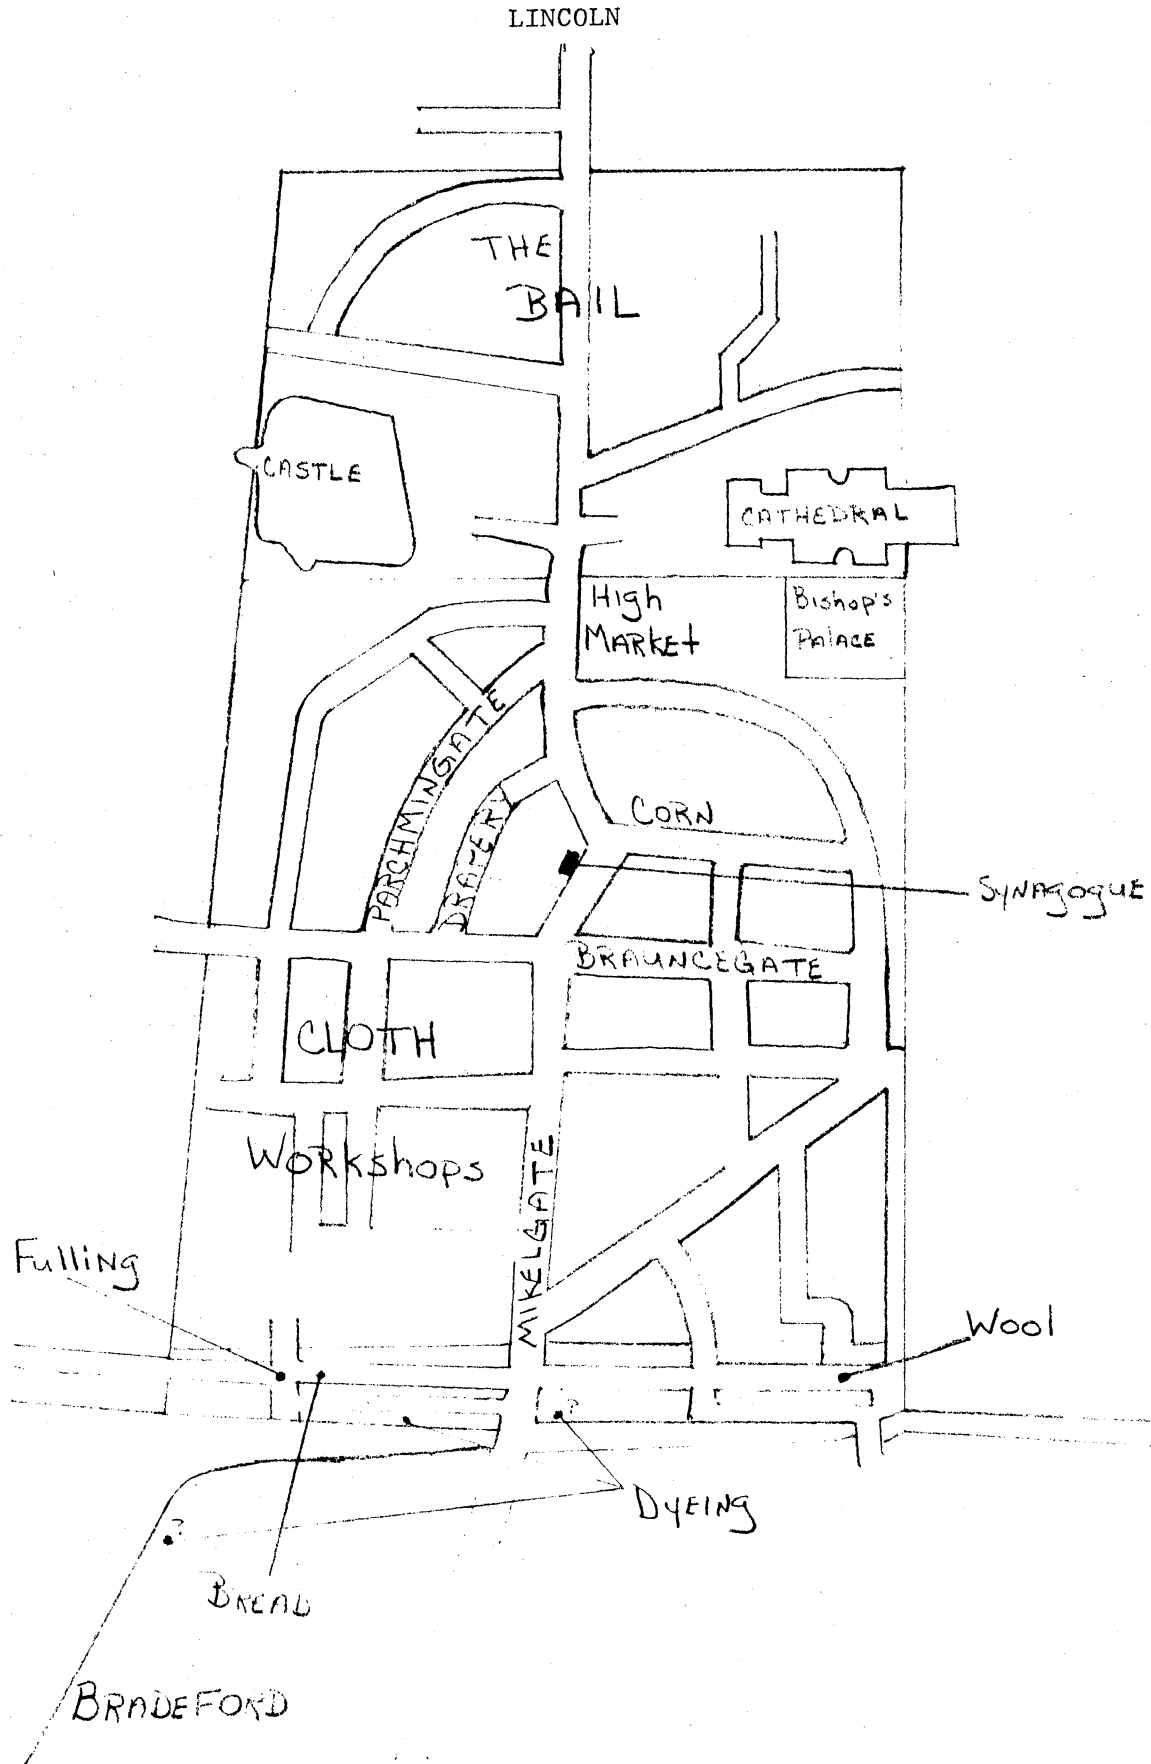 LINCOLN
THE
BAIL
CASTLE
CATHEDRAL
High
MARKET
Bishop's
PALACE
PARCHMINGATE
DRAPERY
CORN
SYNAGOGUE
BRAUNCEGATE
CLOTH
WORKshops
MIKELGATE
Fulling
Wool
?
DYEING
?
BREAD
BRADEFORD